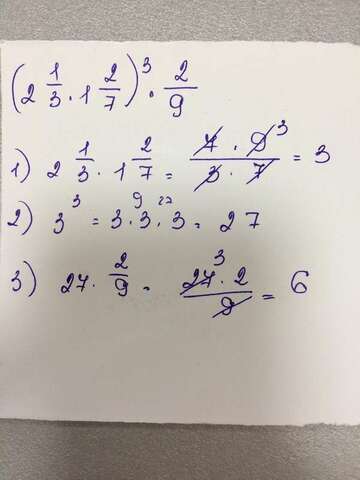 (2 1/3 · 1 2/7)³ · 2/9
1) 2 1/3 · 1 2/7 = 7 · 9 3 / 3 · 7 = 3
2) 3³ = 3 · 3 · 3 = 27 9 27
3) 27 · 2/9 = 27 3 · 2 / 9 = 6